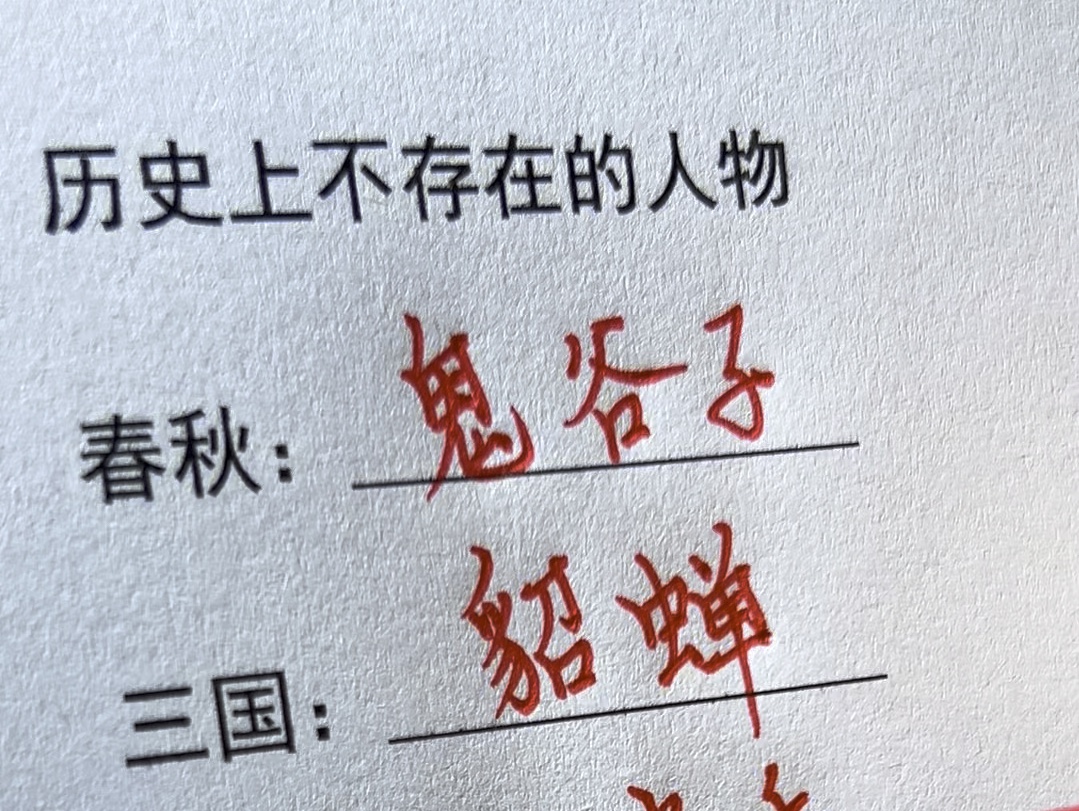 历史上不存在的人物
春秋：鬼谷子
三国：貂蝉